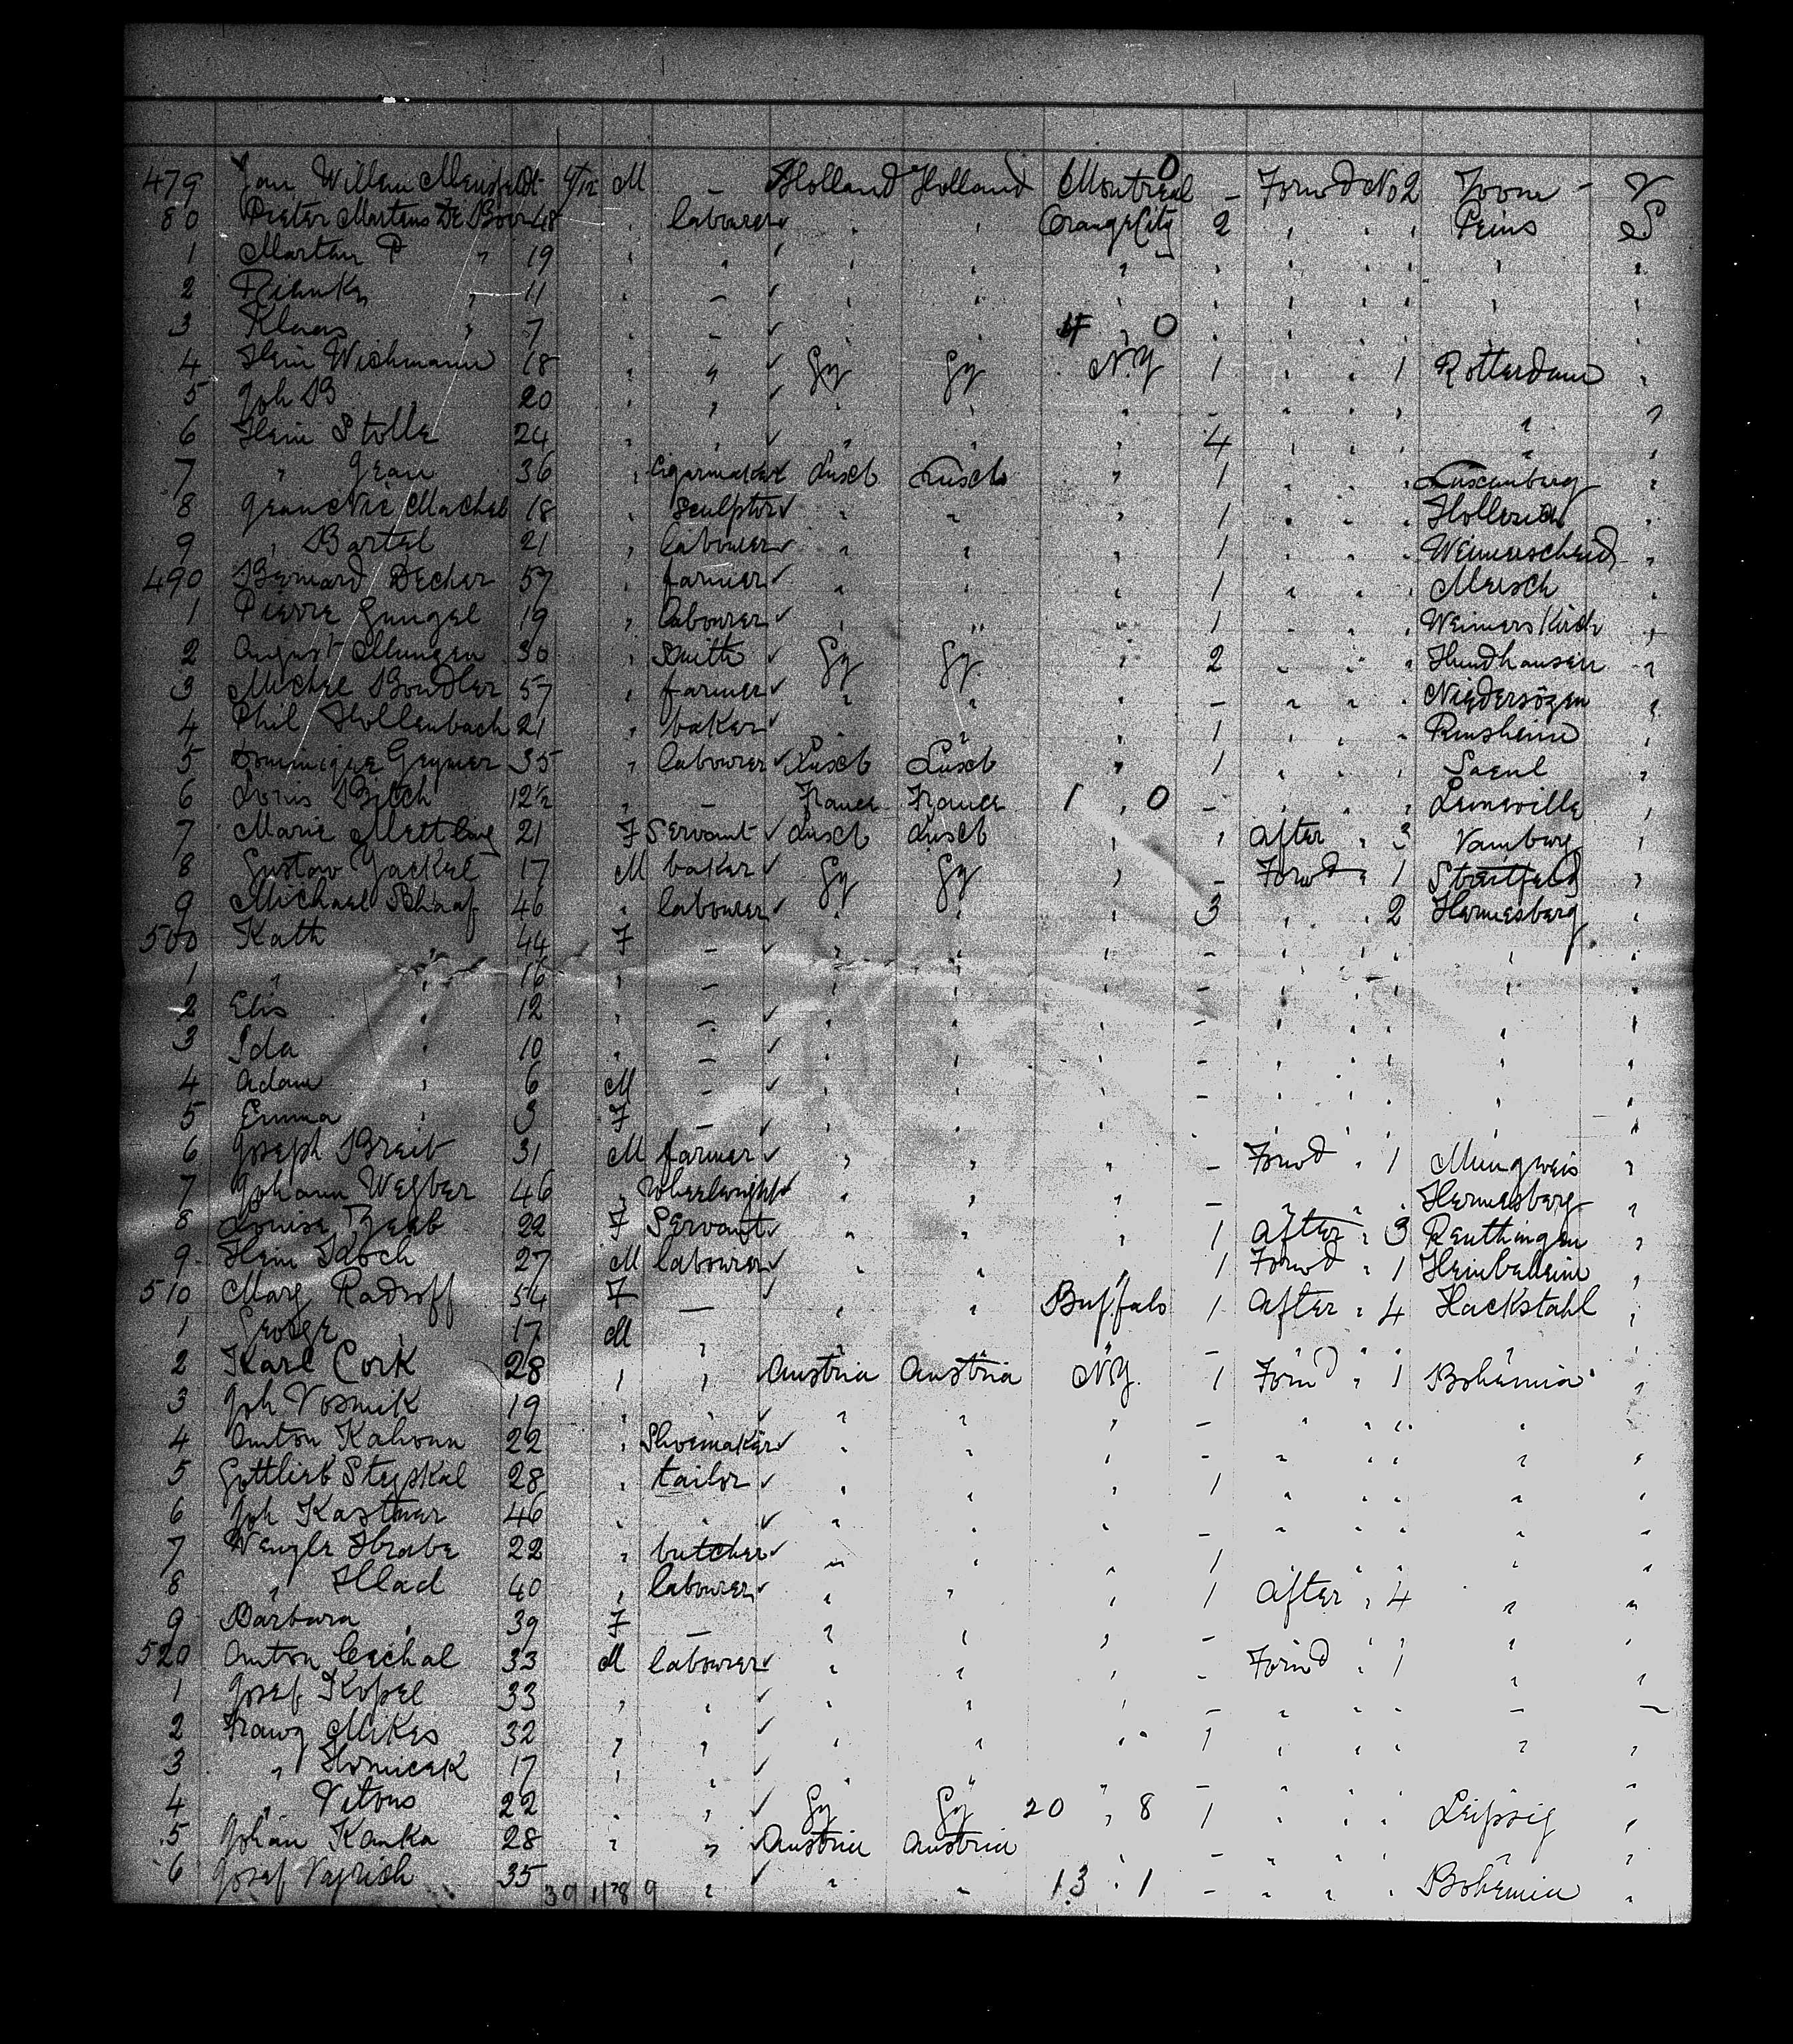 479 Jan Willem 4/12 M - Holland Holland Montreal 0 - Forwd No 2 -
80 Pieter Martens De Boer 48 " labourer " " Orange City 2 " " " Peins S
1 Marten P " 19 " " " " " " " " " " "
2 " 11 " - " " " " " " " "
3 Klaas " 7 " - " " 4 " 0 " " " "
4 Hein Wichmann 18 " " Gy Gy N.Y 1 " " 1 Rotterdam "
5 Joh B 20 " " " " " - " " " " "
6 Hein Stolle 24 " " " " " 4 " " " " "
7 " Jean 36 " Cigarmaker Luxb Luxb " 1 " " " Luxemburg "
8 Jean Nic Machel 18 " Sculptor " " " 1 " " " Hollerich "
9 " Bartel 21 " labourer " " " 1 " " " Weimerscheid "
490 Bernard Decher 57 " farmer " " " 1 " " " Mersch "
1 Pierre Gungel 19 " labourer " " " 1 " " " Weimerskirch "
2 August 30 " Smith Gy Gy " 2 " " " Hundhausen "
3 Michel Bondler 57 " farmer " " " - " " " "
4 Phil Hollenbach 21 " baker " " " 1 " " " Rinsheim "
5 Dominique Geymer 35 " labourer Luxb Luxb " 1 " " " Saeul "
6 Louis 12½ " - France France 1 " 0 - " " " Luneville "
7 Marie 21 F Servant Luxb Luxb " " After " 3 "
8 Gustav Jackel 17 M baker Gy Gy " - Forwd " 1 "
9 Michael Schaaf 46 " labourer " " " 3 " " 2 Hermesberg "
500 Kath 44 F - " " " - " " " " "
1 " " 16 " - " " " - " " " " "
2 Elis " 12 " - " " " - " " " " "
3 Ida " 10 " - " " " - " " " " "
4 Adam " 6 M - " " " - " " " " "
5 Emma " 3 F - " " " - " " " " "
6 Joseph Breit 31 M farmer " " " - Forwd " 1 "
7 Johann Wegber 46 " Wheelwright " " " - " " " Hermesberg "
8 Louise 22 F Servant " " " 1 After " 3 Reuthingen "
9 Hein 27 M labourer " " " 1 Forwd " 1 "
510 Marg Radroff 54 F - " " Buffalo 1 After " 4 Hackstahl "
1 George " 17 M " " " " - " " " " "
2 Karl Cork 28 " " Austria Austria N.Y. 1 Forwd " 1 Bohemia "
3 Joh Vosmik 19 " " " " " - " " " " "
4 Anton Kahoun 22 " Shoemaker " " " - " " " " "
5 Gottlieb Styskal 28 " tailor " " " 1 " " " " "
6 Joh Kastner 46 " " " " " - " " " " "
7 Wenzle Hrabe 22 " butcher " " " 1 " " " " "
8 " Hlad 40 " labourer " " " 1 After " 4 " "
9 Barbara " 39 F - " " " - " " " " "
520 Anton Cechal 33 M labourer " " " - Forwd " 1 " "
1 Josef Kopel 33 " " " " " - " " " " "
2 Franz Mikes 32 " " " " " 1 " " " " "
3 " Homicek 17 " " " " " - " " " " "
4 " Vitous 22 " " Gy Gy 20 " 8 1 " " " Leipsig "
5 Johan Kanka 28 " " Austria Austria " - " " " " "
6 Josef 35 " " " 13 " 1 - " " " Bohemia "